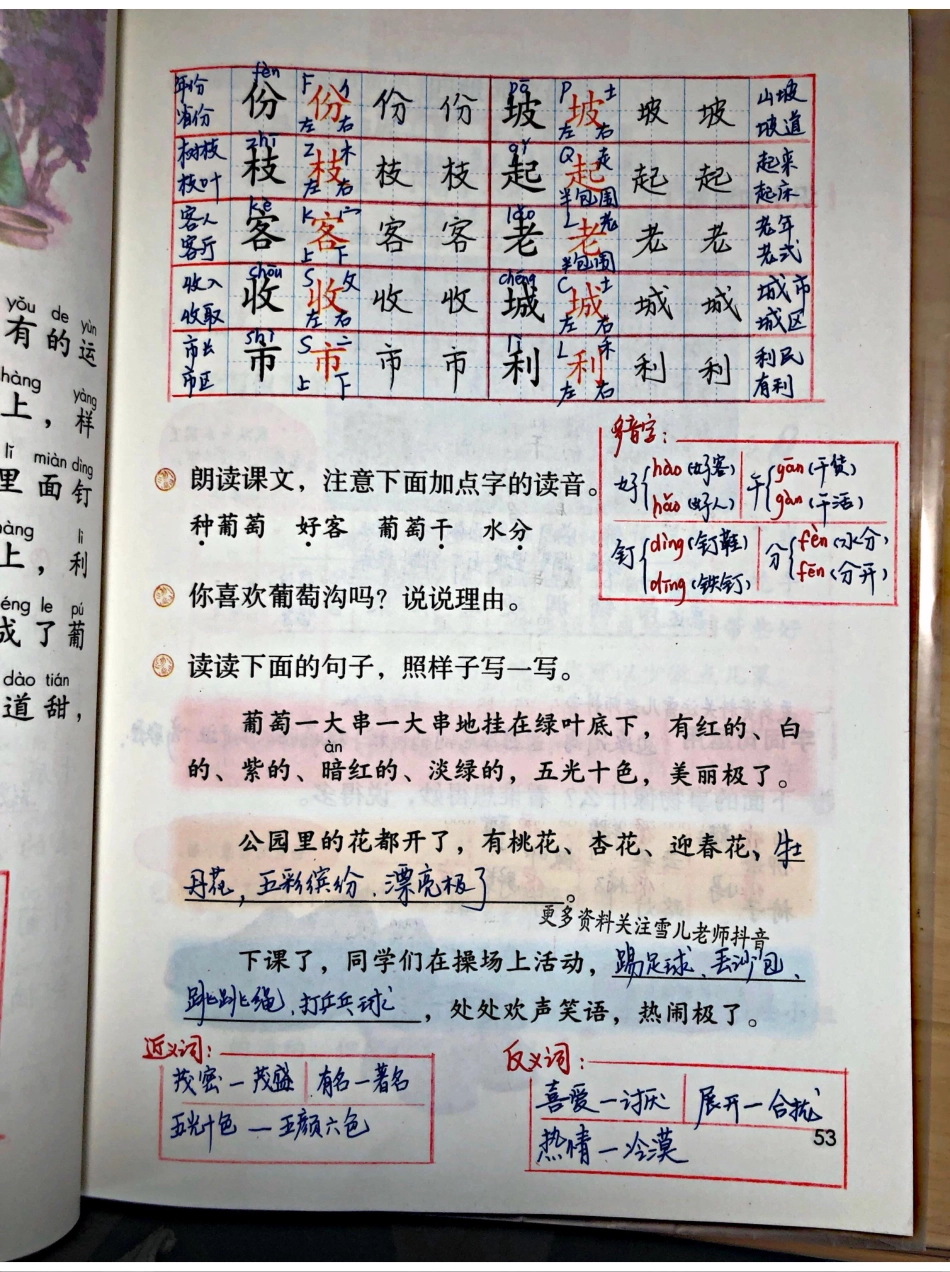 yǒu de yùn
有的运
hàng yàng
上，样
lǐ miàn dìng
里面钉
hàng lì
上，利
éng le pú
成了葡
dào tián
道甜，
年份 省份 fèn 份 F 份 亻 左 右 份 份 pō 坡 P 坡 土 左 右 坡 坡 山坡 坡道
树枝 枝叶 zhī 枝 Z 枝 木 左 右 枝 枝 qǐ 起 Q 起 走 半包围 起 起 起来 起床
客人 客厅 kè 客 K 客 宀 上 下 客 客 lǎo 老 L 老 耂 半包围 老 老 老年 老式
收入 收取 shōu 收 S 收 攵 左 右 收 收 chéng 城 C 城 土 左 右 城 城 城市 城区
市长 市区 shì 市 S 市 亠 上 下 市 市 lì 利 L 利 禾 左 右 利 利 利民 有利
多音字：
好 hào（好客） hǎo（好人） 干 gān（干货） gàn（干活）
钉 dìng（钉鞋） dīng（铁钉） 分 fèn（水分） fēn（分开）
朗读课文，注意下面加点字的读音。
种葡萄 好客 葡萄干 水分
你喜欢葡萄沟吗？说说理由。
读读下面的句子，照样子写一写。
葡萄一大串一大串地挂在绿叶底下，有红的、白
àn
的、紫的、暗红的、淡绿的，五光十色，美丽极了。
公园里的花都开了，有桃花、杏花、迎春花、牡
丹花，五彩缤纷，漂亮极了。
更多资料关注雪儿老师抖音
下课了，同学们在操场上活动，踢足球、丢沙包、
跳跳绳、打乒乓球，处处欢声笑语，热闹极了。
近义词：
茂密一茂盛 有名一著名
五光十色一五颜六色
反义词：
喜爱一讨厌 展开一合拢
热情一冷漠
53